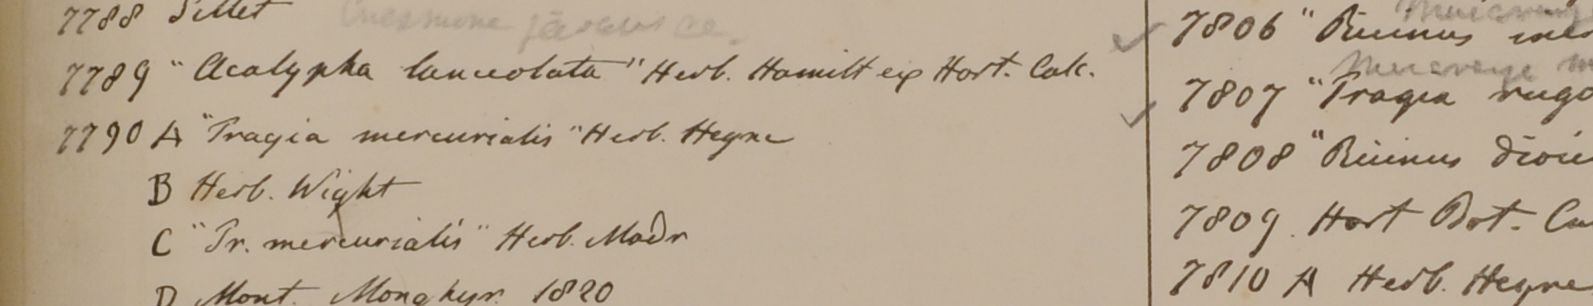 7788 Sillet
7789 "Acalypha lanceolata" Herb. Hamilt ex Hort. Calc.
7790 A "Tragia mercurialis" Herb. Heyne
B Herb. Wight
C "Tr. mercurialis" Herb. Madr
D Mont. Monghyr 1820
7806 "Ricinus
7807 "Tragia rugo
7808 "Ricinus dioic
7809 Hort Bot. Ca
7810 A Herb. Heyne